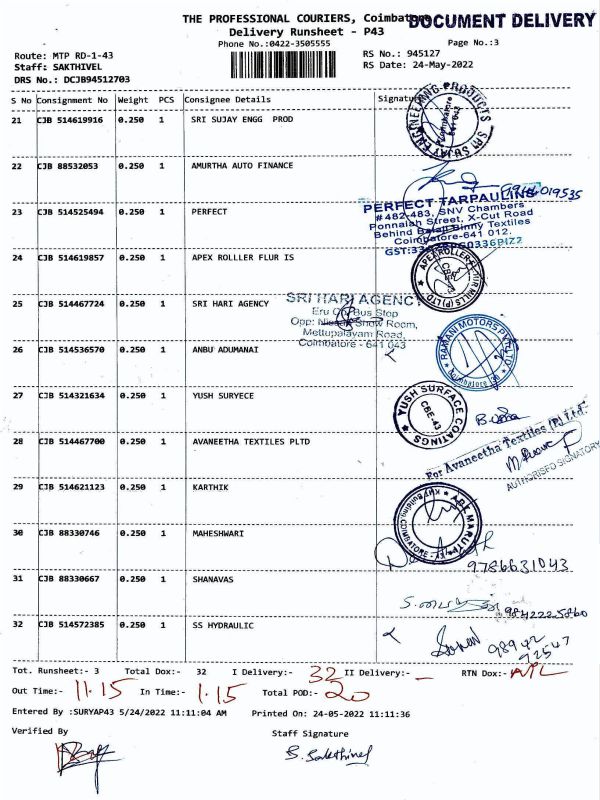 THE PROFESSIONAL COURIERS, Coimbatore
DOCUMENT DELIVERY
Delivery Runsheet - P43
Phone No.:0422-3505555
Page No.:3
Route: MTP RD-1-43
RS No.: 945127
Staff: SAKTHIVEL
RS Date: 24-May-2022
DRS No.: DCJB94512703
S No Consignment No Weight PCS Consignee Details Signature
21 CJB 514619916 0.250 1 SRI SUJAY ENGG PROD
SRI SUJAY ENGINEERING PRODUCTS
22 CJB 88532053 0.250 1 AMURTHA AUTO FINANCE
23 CJB 514525494 0.250 1 PERFECT
PERFECT TARPAULINS
#482-483, SNV Chambers
Ponnaiah Street, X-Cut Road
Behind Balaji Binny Textiles
Coimbatore-641 012.
24 CJB 514619857 0.250 1 APEX ROLLLER FLUR IS
APEX ROLLER FLOUR MILLS (P) LTD
CBE-43
25 CJB 514467724 0.250 1 SRI HARI AGENCY
SRI HARI AGENCY
Eru Co. Bus Stop
Opp: Show Room,
Mettupalayam Road,
Coimbatore - 641 043
26 CJB 514536570 0.250 1 ANBU ADUMANAI
RAMANI MOTORS PVT LTD
Coimbatore
27 CJB 514321634 0.250 1 YUSH SURYECE
YUSH SURFACE COATINGS
CBE-43
28 CJB 514467700 0.250 1 AVANEETHA TEXTILES PLTD
For Avaneetha Textiles (P) Ltd.
AUTHORISED SIGNATORY
29 CJB 514621123 0.250 1 KARTHIK
ABE MARUTHI
30 CJB 88330746 0.250 1 MAHESHWARI
9786631043
31 CJB 88330667 0.250 1 SHANAVAS
9842225860
32 CJB 514572385 0.250 1 SS HYDRAULIC
98942
72547
Tot. Runsheet:- 3 Total Dox:- 32 I Delivery:- 32 II Delivery:- - RTN Dox:- NIL
Out Time:- 11.15 In Time:- 1.15 Total POD:- 20
Entered By :SURYAP43 5/24/2022 11:11:04 AM Printed On: 24-05-2022 11:11:36
Verified By
Staff Signature
S. Sakthivel